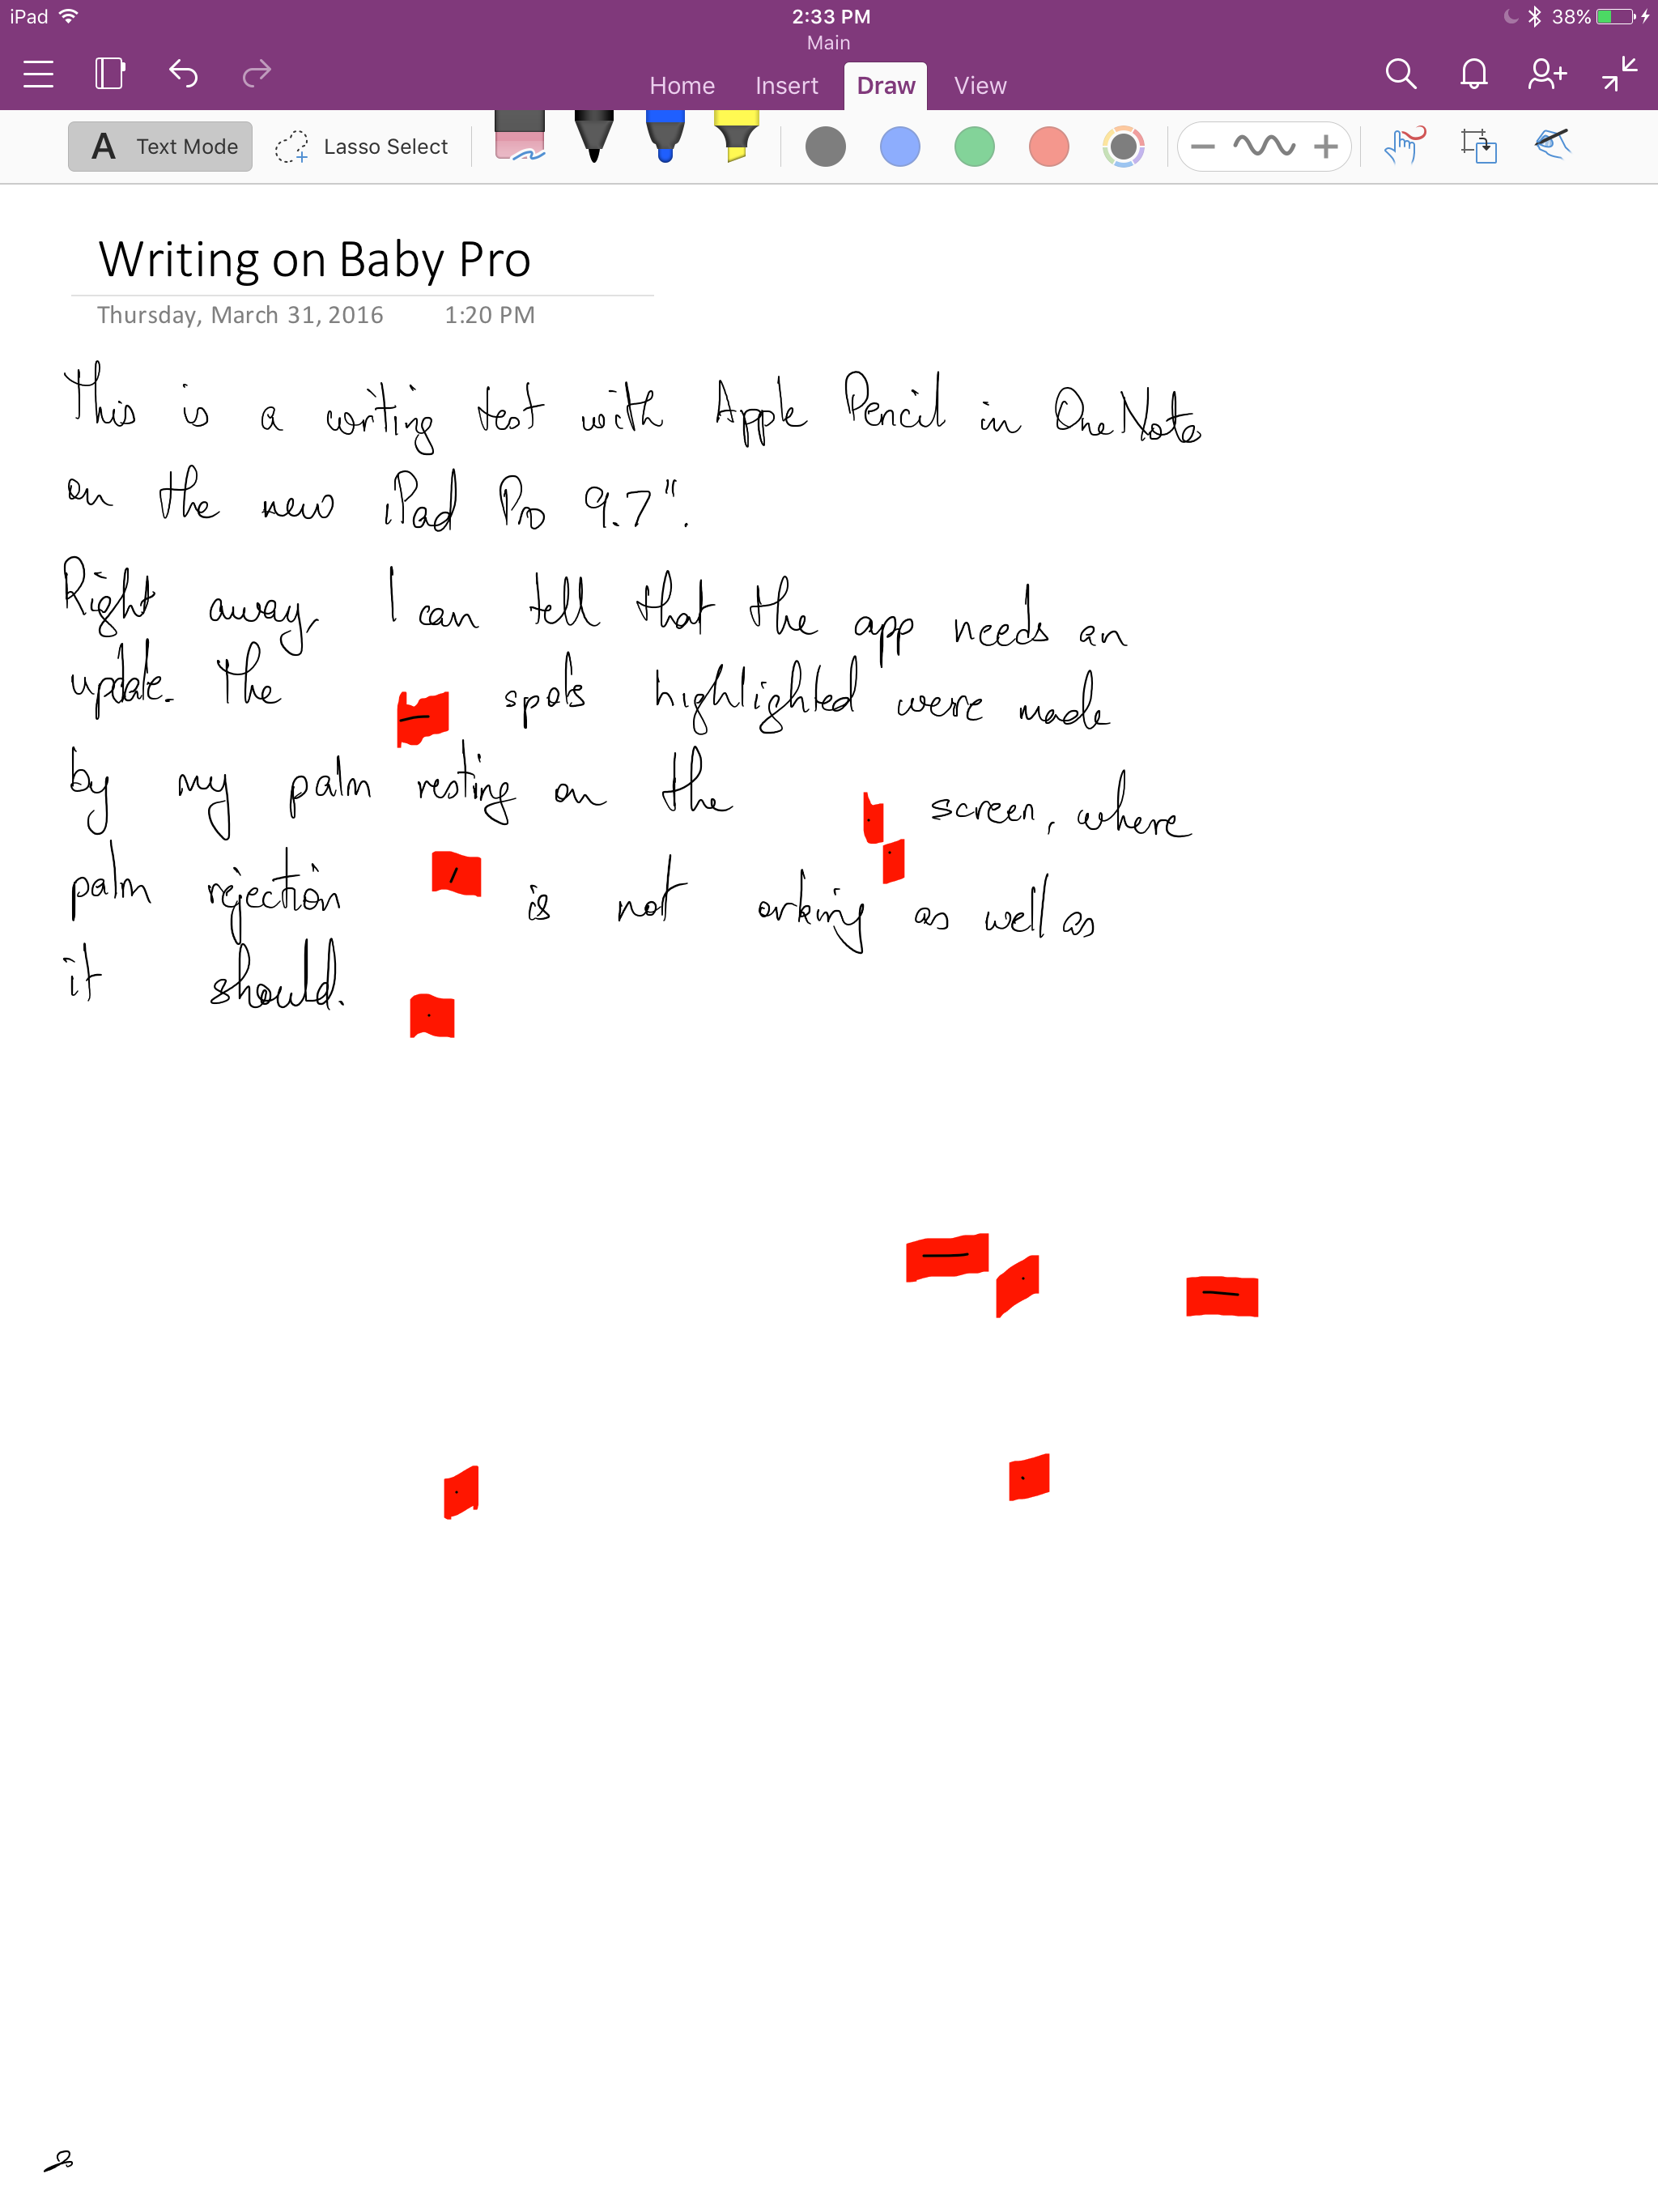 iPad 2:33 PM 38%
Main
Home Insert Draw View
A Text Mode Lasso Select
Writing on Baby Pro
Thursday, March 31, 2016 1:20 PM
This is a writing test with Apple Pencil in OneNote
on the new iPad Pro 9.7".
Right away, I can tell that the app needs an
update. The spots highlighted were made
by my palm resting on the screen, where
palm rejection is not orking as well as
it should.